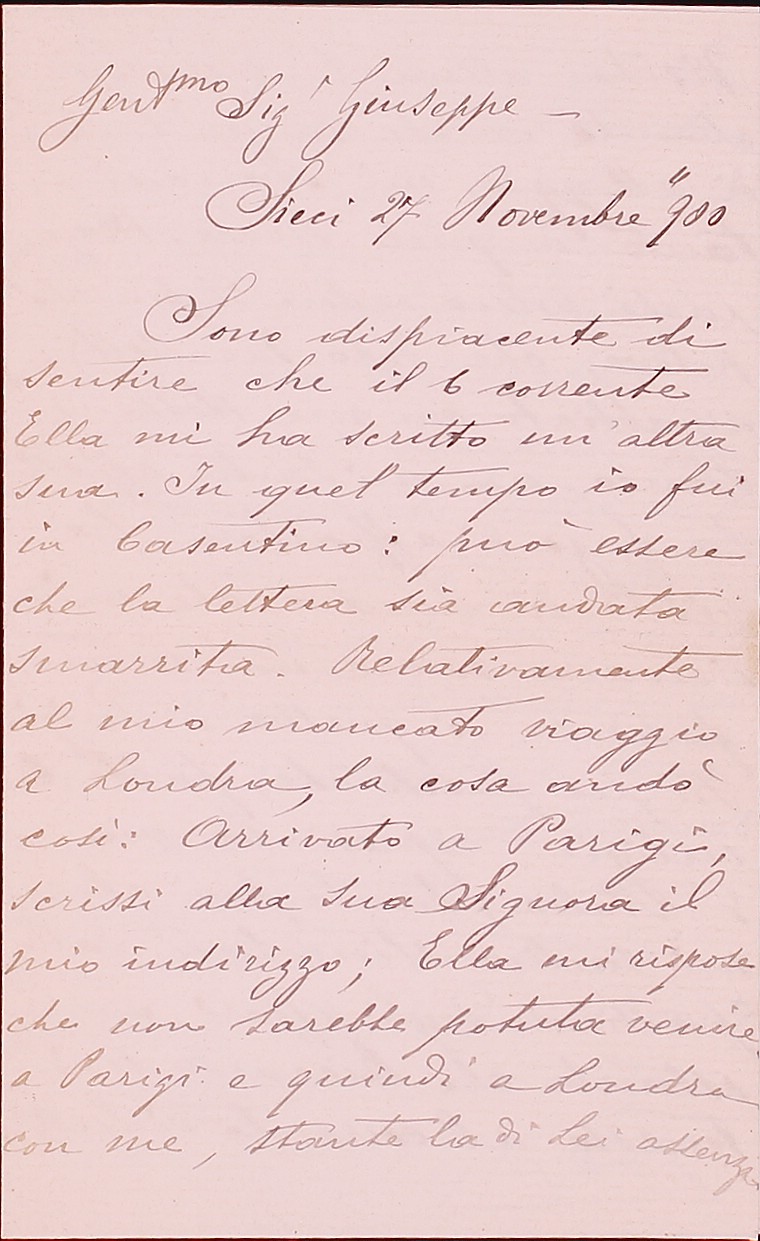 Gentmo Sigr Giuseppe —
Sieci 27 Novembre "900
Sono dispiacente di
sentire che il 6 corrente
Ella mi ha scritto un'altra
sua. In quel tempo io fui
in Casentino: può essere
che la lettera sia andata
smarrita. Relativamente
al mio mancato viaggio
a Londra, la cosa andò
così: Arrivato a Parigi,
scrissi alla sua Signora il
mio indirizzo; Ella mi rispose
che non sarebbe potuta venire
a Parigi e quindi a Londra
con me, stante la di Lei assenza